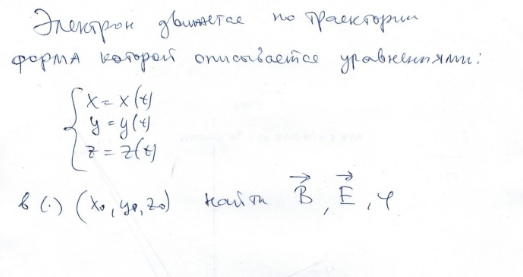 Электрон движется по траектории
форма которой описывается уравнениями:
x = x(t)
y = y(t)
z = z(t)
в (·) (x₀, y₀, z₀) найти B, E, φ